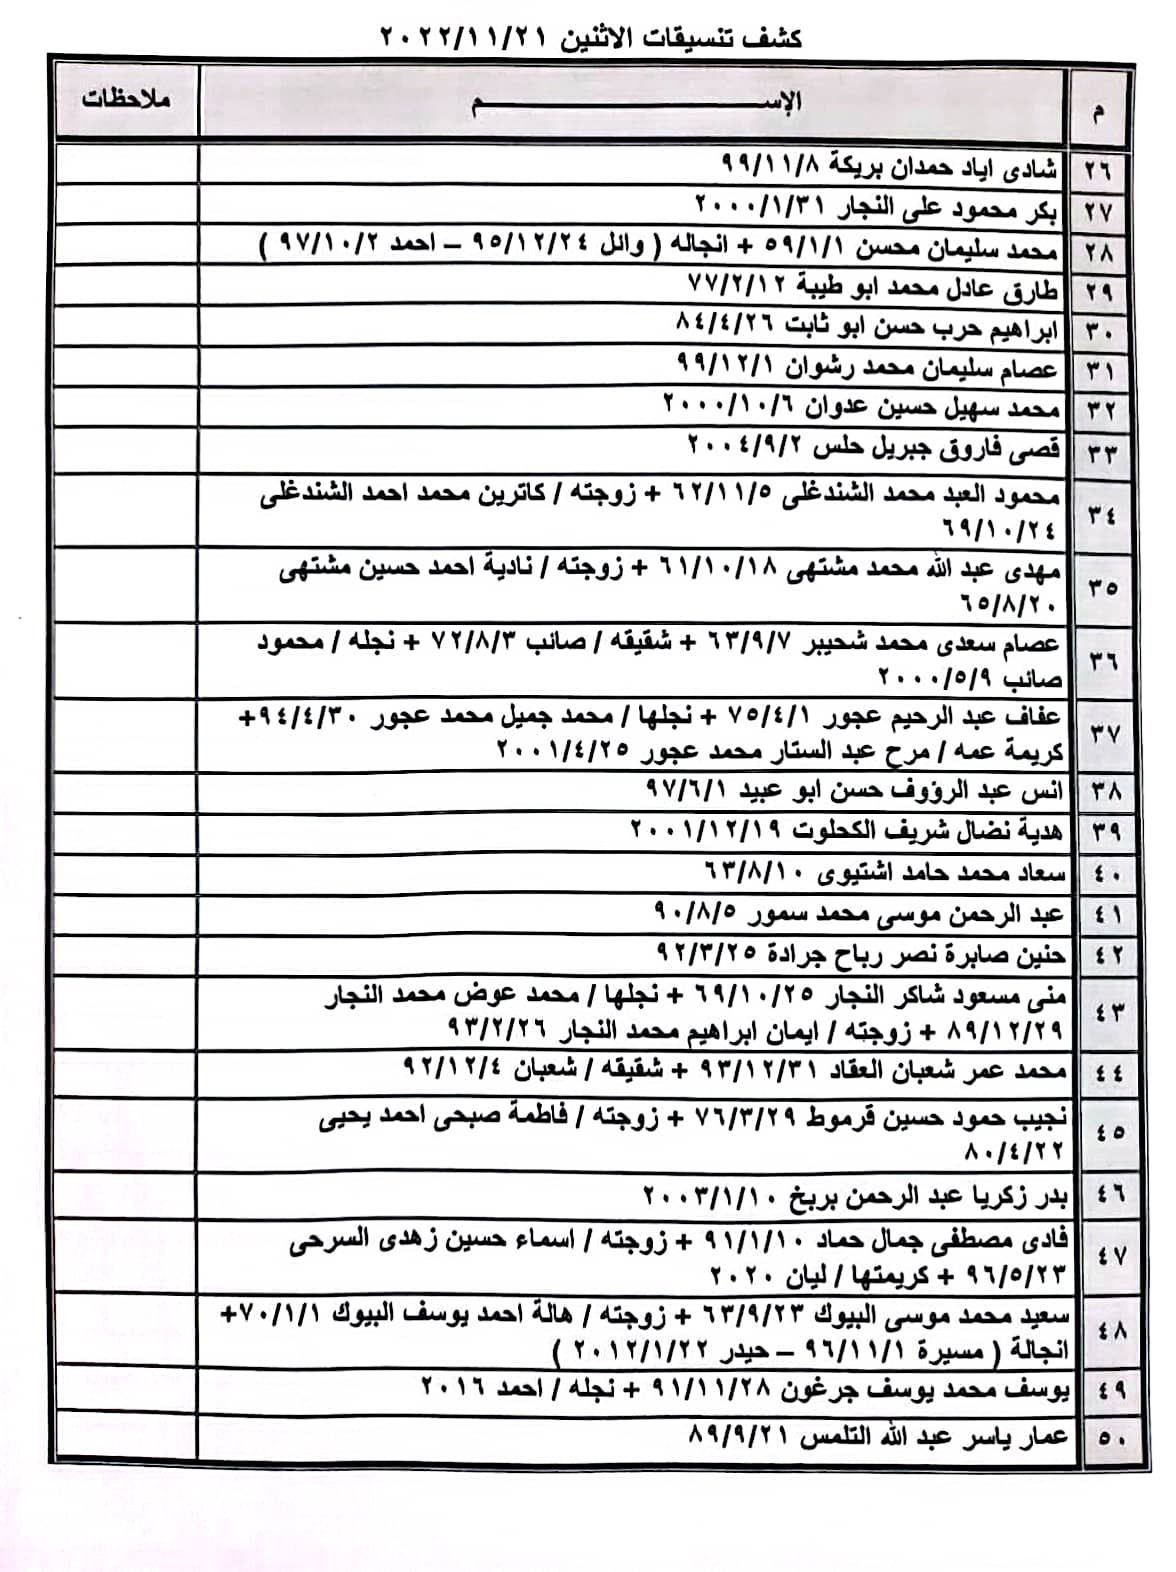 كشف تنسيقات الاثنين ٢٠٢٢/١١/٢١
م الإســـــــم ملاحظات
٢٦ شادى اياد حمدان بريكة ٩٩/١١/٨
٢٧ بكر محمود على النجار ٢٠٠٠/١/٣١
٢٨ محمد سليمان محسن ٥٩/١/١ + انجاله ( وائل ٩٥/١٢/٢٤ – احمد ٩٧/١٠/٢ )
٢٩ طارق عادل محمد ابو طيبة ٧٧/٢/١٢
٣٠ ابراهيم حرب حسن ابو ثابت ٨٤/٤/٢٦
٣١ عصام سليمان محمد رشوان ٩٩/١٢/١
٣٢ محمد سهيل حسين عدوان ٢٠٠٠/١٠/٦
٣٣ قصى فاروق جبريل حلس ٢٠٠٤/٩/٢
٣٤ محمود العبد محمد الشندغلى ٦٢/١١/٥ + زوجته / كاترين محمد احمد الشندغلى
٦٩/١٠/٢٤
٣٥ مهدى عبد الله محمد مشتهى ٦١/١٠/١٨ + زوجته / نادية احمد حسين مشتهى
٦٥/٨/٢٠
٣٦ عصام سعدى محمد شحيبر ٦٣/٩/٧ + شقيقه / صائب ٧٢/٨/٣ + نجله / محمود
صائب ٢٠٠٠/٥/٩
٣٧ عفاف عبد الرحيم عجور ٧٥/٤/١ + نجلها / محمد جميل محمد عجور ٩٤/٤/٣٠+
كريمة عمه / مرح عبد الستار محمد عجور ٢٠٠١/٤/٢٥
٣٨ انس عبد الرؤوف حسن ابو عبيد ٩٧/٦/١
٣٩ هدية نضال شريف الكحلوت ٢٠٠١/١٢/١٩
٤٠ سعاد محمد حامد اشتيوى ٦٣/٨/١٠
٤١ عبد الرحمن موسى محمد سمور ٩٠/٨/٥
٤٢ حنين صابرة نصر رباح جرادة ٩٢/٣/٢٥
٤٣ منى مسعود شاكر النجار ٦٩/١٠/٢٥ + نجلها / محمد عوض محمد النجار
٨٩/١٢/٢٩ + زوجته / ايمان ابراهيم محمد النجار ٩٣/٢/٢٦
٤٤ محمد عمر شعبان العقاد ٩٣/١٢/٣١ + شقيقه / شعبان ٩٢/١٢/٤
٤٥ نجيب حمود حسين قرموط ٧٦/٣/٢٩ + زوجته / فاطمة صبحى احمد يحيى
٨٠/٤/٢٢
٤٦ بدر زكريا عبد الرحمن بربخ ٢٠٠٣/١/١٠
٤٧ فادى مصطفى جمال حماد ٩١/١/١٠ + زوجته / اسماء حسين زهدى السرحى
٩٦/٥/٢٣ + كريمتها / ليان ٢٠٢٠
٤٨ سعيد محمد موسى البيوك ٦٣/٩/٢٣ + زوجته / هالة احمد يوسف البيوك ٧٠/١/١+
انجالة ( مسيرة ٩٦/١١/١ – حيدر ٢٠١٢/١/٢٢ )
٤٩ يوسف محمد يوسف جرغون ٩١/١١/٢٨ + نجله / احمد ٢٠١٦
٥٠ عمار ياسر عبد الله التلمس ٨٩/٩/٢١